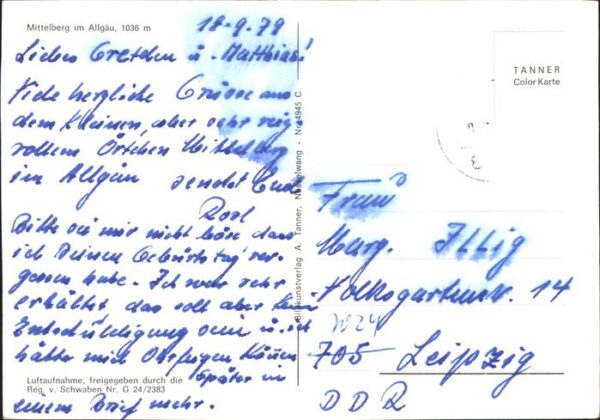 Mittelberg im Allgäu, 1036 m
18-9.79
Liebes Gretchen u. Matthias!
Viele herzliche Grüsse aus
dem Kleinen, aber sehr reiz-
vollem Örtchen Mittelberg
im Allgäu sendet Euch
Rosl
Bitte sei mir nicht böse dass
ich Deinen Geburtstag ver-
gessen habe. Ich war sehr
erkältet das soll aber kein
Entschuldigung sein u. ich
hätte mich
Später in
einem Brief mehr.
Luftaufnahme, freigegeben durch die
Reg. v. Schwaben Nr. G 24/2383
Bildkunstverlag A. Tanner, Nesselwang - Nr. 44945 C
TANNER
Color Karte
Frau
Marg. Illig
Volksgartenstr. 14
705 Leipzig
DDR